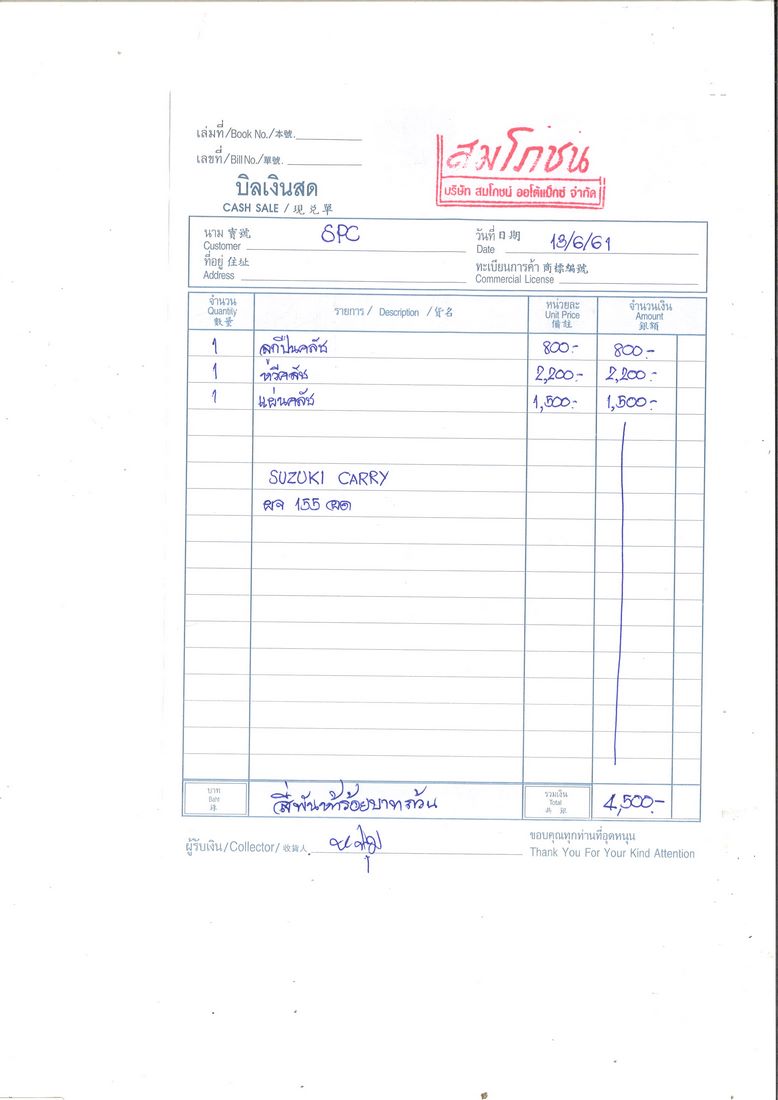 เล่มที่/Book No./本號.
เลขที่/Bill No./單號.
บิลเงินสด
CASH SALE / 現兑單
สมโภชน์
บริษัท สมโภชน์ ออโต้แม็กซ์ จำกัด
นาม 寶號 Customer SPC
วันที่ 日期 Date 13/6/61
ที่อยู่ 住址 Address
ทะเบียนการค้า 商標編號 Commercial License
จำนวน Quantity 數量 รายการ / Description / 貨名 หน่วยละ Unit Price 價註 จำนวนเงิน Amount 銀額
1 ลูกปืนคลัช 800.- 800.-
1 หวีคลัช 2,200.- 2,200.-
1 แผ่นคลัช 1,500.- 1,500.-
SUZUKI CARRY
155
บาท Baht สี่พันห้าร้อยบาทถ้วน รวมเงิน Total 共銀 4,500.-
ผู้รับเงิน/Collector/收貨人
ขอบคุณทุกท่านที่อุดหนุน
Thank You For Your Kind Attention